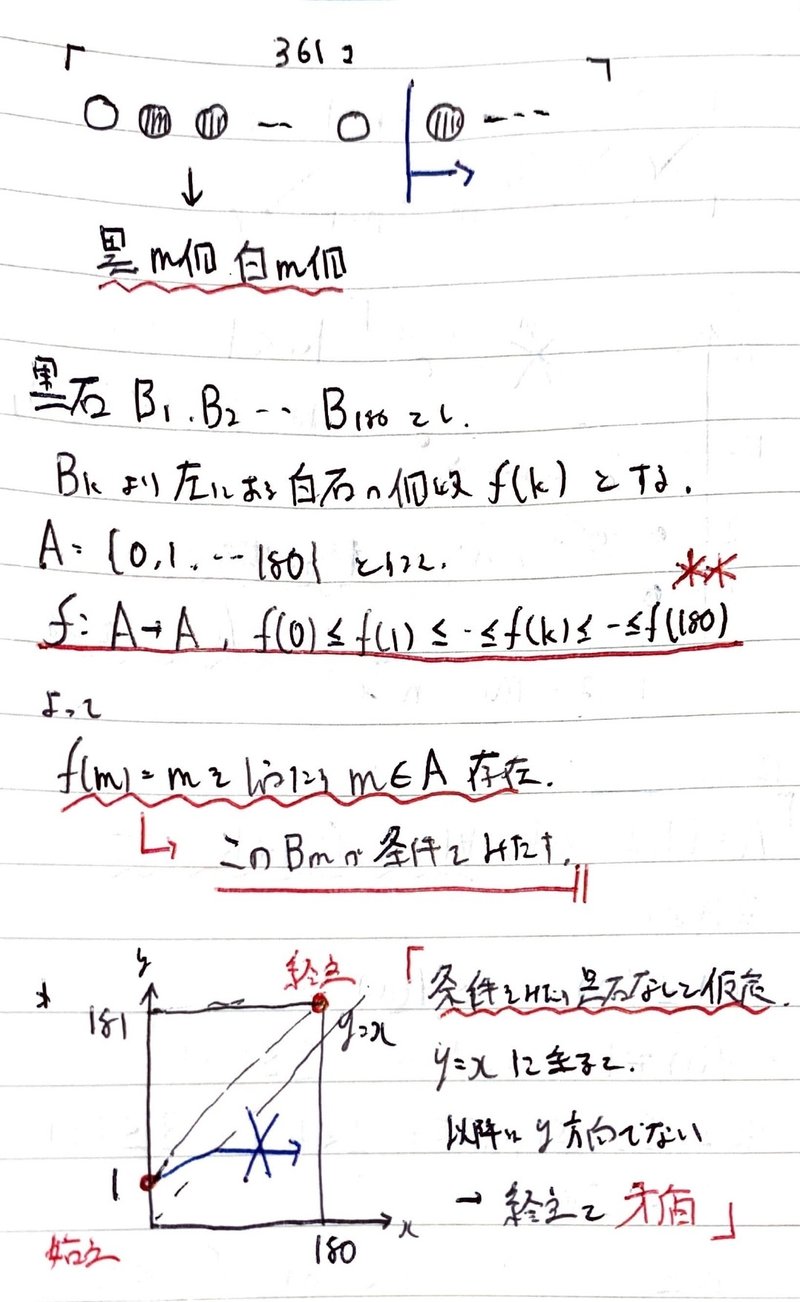 「 361コ 」
↓
黒m個 白m個
黒石 B₁, B₂ … B₁₈₀ とし,
Bₖ より左にある白石の個数 f(k) とする.
A = {0, 1, … 180} とすると,
**
f: A→A, f(0) ≤ f(1) ≤ … ≤ f(k) ≤ … ≤ f(180)
よって
f(m) = m となる m ∈ A 存在.
↳ この Bm が 条件をみたす.
* y
終点
181
y=x
1
始点
180
x
「条件をみたす黒石なしと仮定.
y=x に至ると,
以降は y 方向でない
→ 終点と 矛盾」